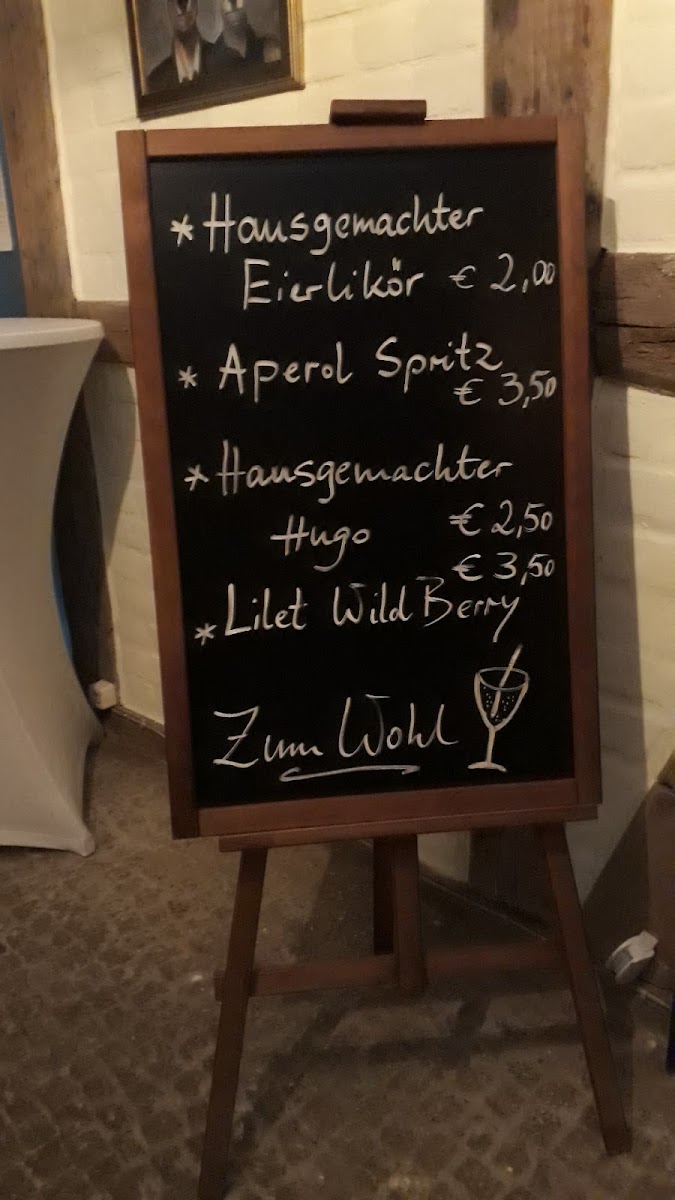 * Hausgemachter
Eierlikör € 2,00
* Aperol Spritz
€ 3,50
* Hausgemachter
Hugo € 2,50
€ 3,50
* Lilet Wild Berry
Zum Wohl